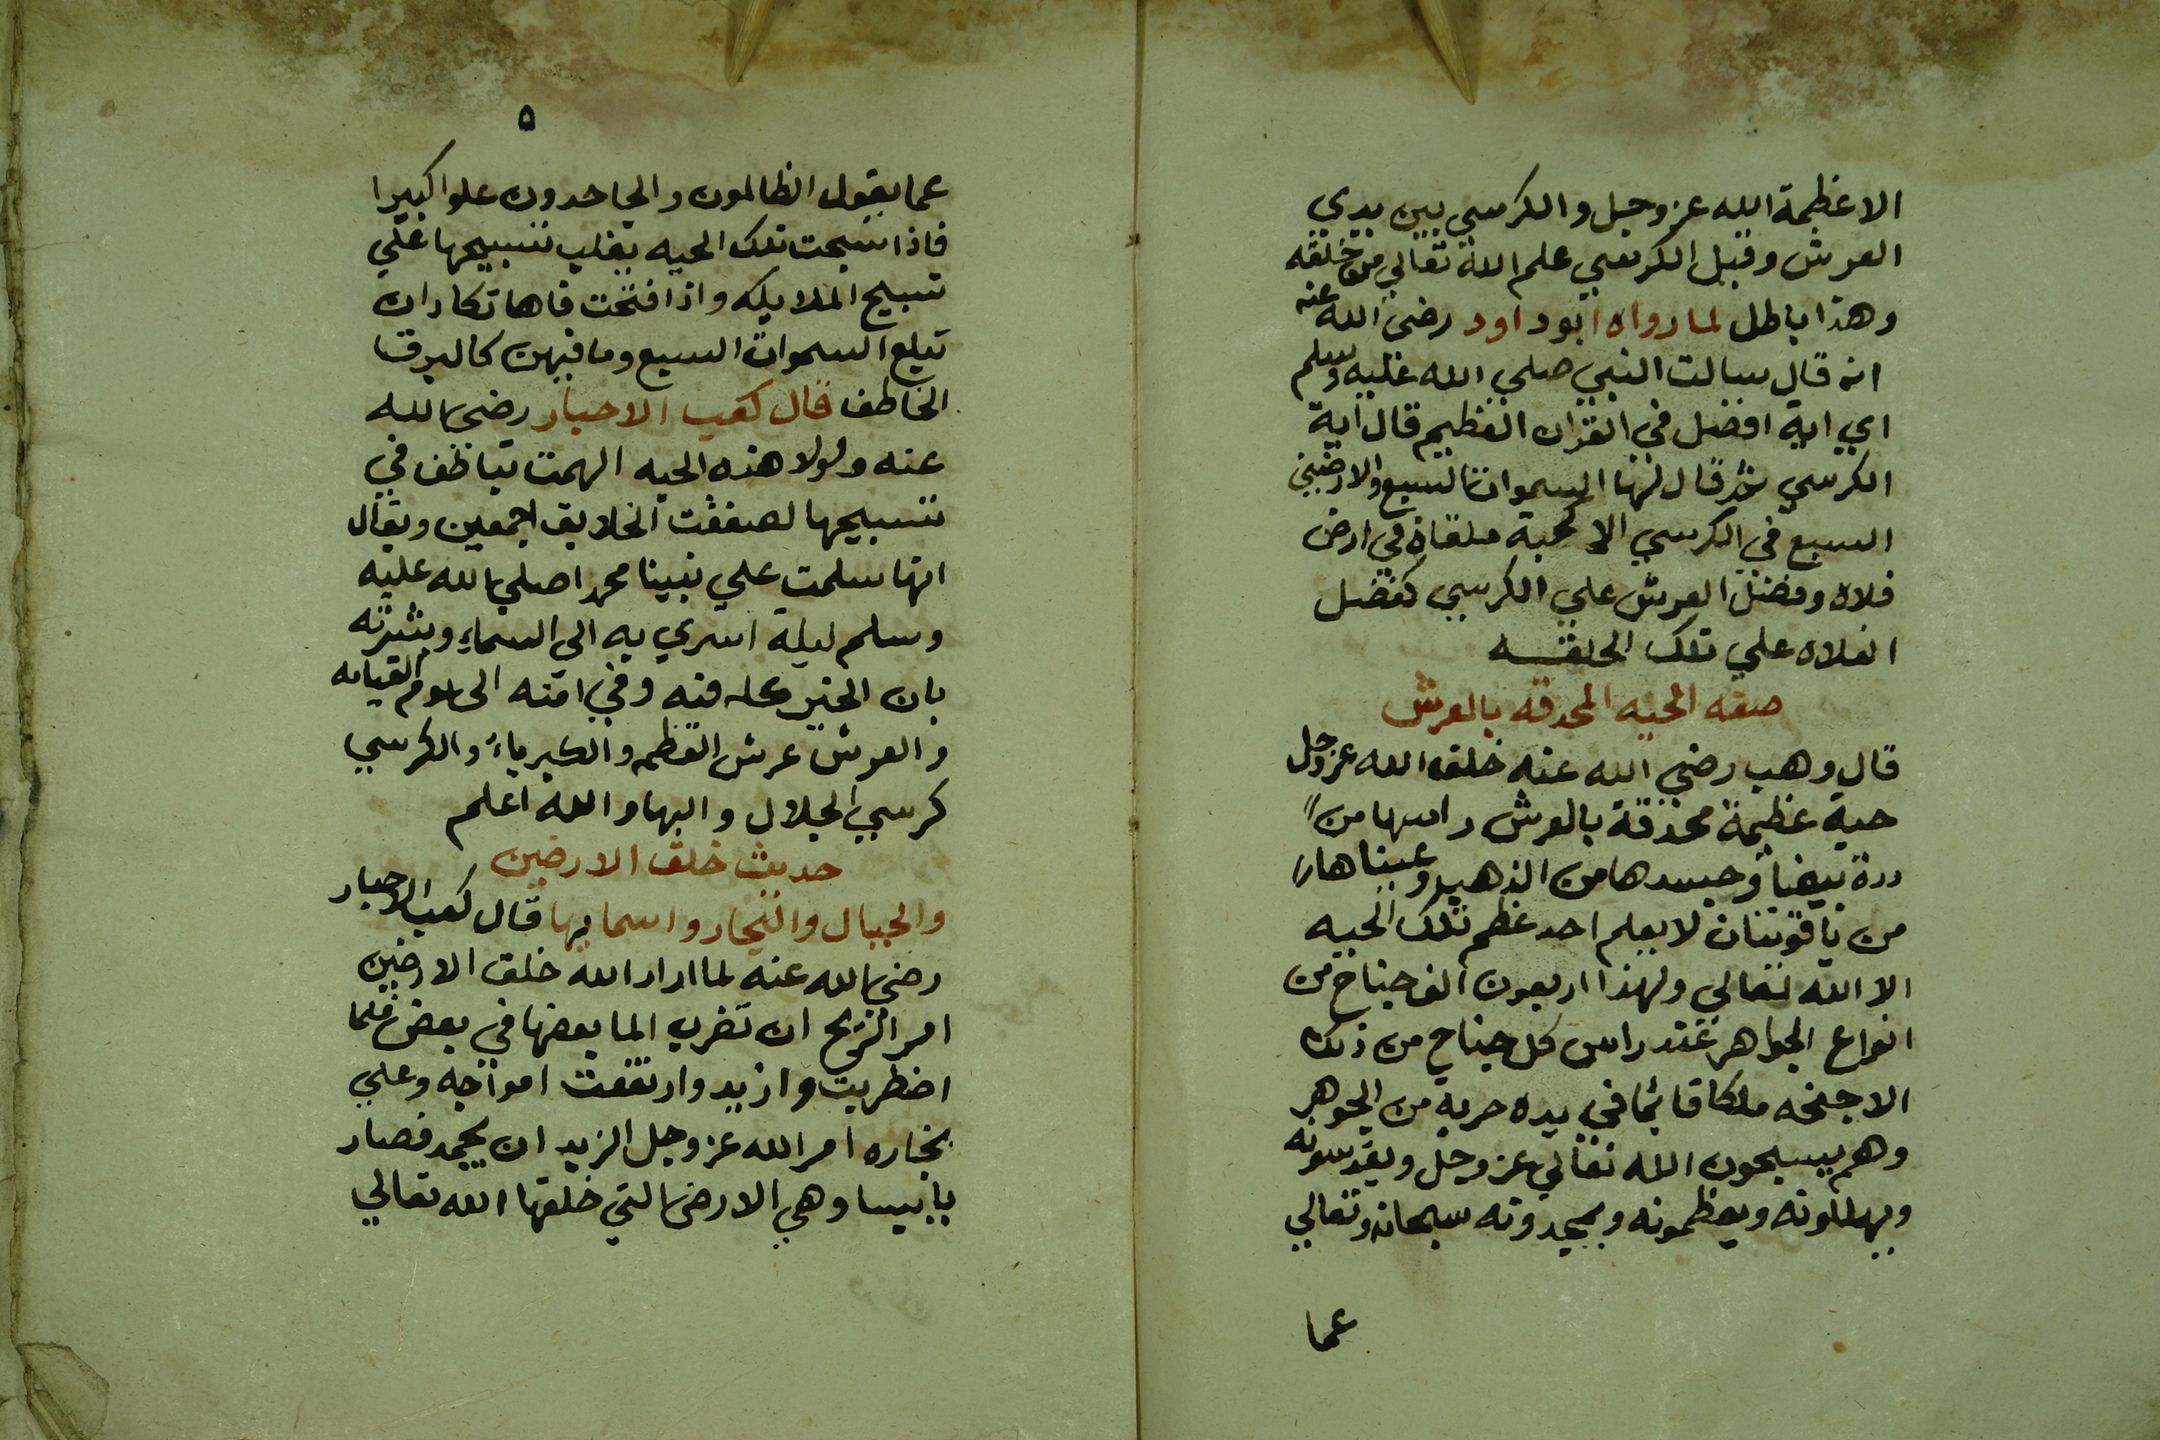 الا عظمة الله عز وجل والكرسي بين يدي
العرش وقيل الكرسي علم الله تعالي من خلقه
وهذا باطل لما رواه ابو داود رضى الله عنه
انه قال سالت النبي صلي الله عليه وسلم
اي اية افضل في القران العظيم قال اية
الكرسي ثم قال لنها السموات السبع والارضين
السبع في الكرسي الا كحبة ملقاة في ارض
فلاه وفضل العرش علي الكرسي كفضل
الفلاه علي تلك الحلقه
صفه الحيه المحدقه بالعرش
قال وهب رضي الله عنه خلق الله عز وجل
حية عظيمة محدقة بالعرش راسها من
درة بيضا وجسدها من الذهب وعيناها
من ياقوتتان لا يعلم احد عظم تلك الحيه
الا الله تعالي ولهذا اربعون الف جناح من
انواع الجواهر عند راس كل جناح من ذلك
الاجنحه ملكا قائما في يده حربة من الجوهر
وهم يسبحون الله تعالي عز وجل ويقدسونه
ويهللونه ويعظمونه ويمجدونه سبحانه وتعالي
عما
٥
عما يقول الظالمون والجاحدون علوا كبيرا
فاذا سبحت تلك الحيه يغلب تسبيحها علي
تسبيح الملايكه واذا فتحت فاها تكاد ان
تبلع السموات السبع وما فيهن كالبرق
الخاطف قال كعب الاحبار رضى الله
عنه ولولا هذه الحيه الهمت في
تسبيحها لصعقت الخلايق اجمعين ويقال
انها سلمت علي نبينا محمدا صلي الله عليه
وسلم ليلة اسري به الى السماء وبشرته
بان الخير كله فيه وفي امته الى يوم القيامه
والعرش عرش العظمه والكبرياء والكرسي
كرسي الجلال والبها والله اعلم
حديث خلق الارضين
والجبال والبحار واسمايها قال كعب الاحبار
رضى الله عنه لما اراد الله خلق الارضين
امر الريح ان تضرب الما بعضها في بعض فلما
اضطربت وازبد وارتفعت امواجه وعلي
بخاره امر الله عز وجل الزبد ان يجمد فصار
يابسا وهي الارض التي خلقها الله تعالي